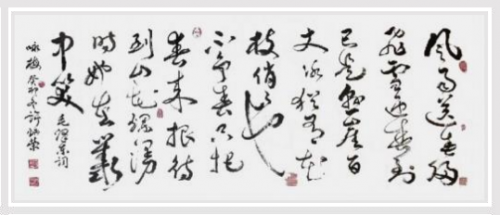 風雨送春歸
飛雪迎春到
已是懸崖百
丈冰猶有花
枝俏俏也
不争春只把
春来报待
到山花爛漫
時她在叢
中笑 毛澤東詞
咏梅 癸卯冬 許炳榮